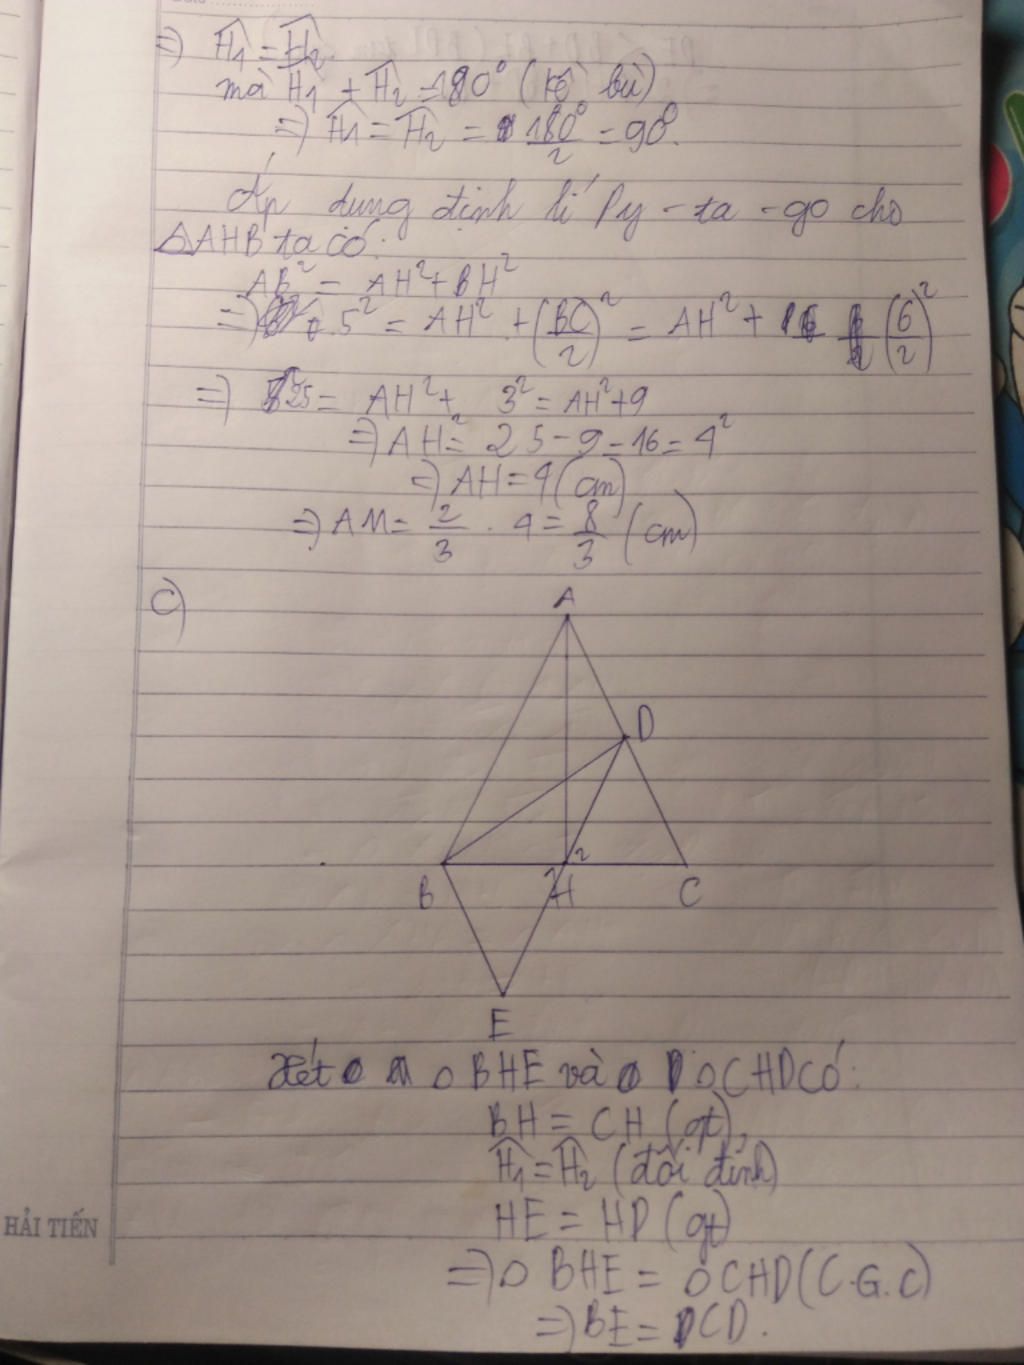 ⇒ Ĥ1 = Ĥ2.
mà Ĥ1 + Ĥ2 = 180° (kề bù)
⇒ Ĥ1 = Ĥ2 = 180°/2 = 90°.
Áp dụng định lí Py-ta-go cho
△AHB ta có:
AB² = AH² + BH²
⇒ 5² = AH² + (BC/2)² = AH² + (6/2)²
⇒ 25 = AH² + 3² = AH² + 9
⇒ AH² = 25 - 9 = 16 = 4²
⇒ AH = 4 (cm)
⇒ AM = 2/3 . 4 = 8/3 (cm)
C)
A
D
2
B
1
H
C
E
Xét △BHE và △CHD có:
BH = CH (gt),
Ĥ1 = Ĥ2 (đối đỉnh)
HE = HD (gt)
⇒ △BHE = △CHD (C.G.C)
⇒ BE = CD.
HẢI TIẾN